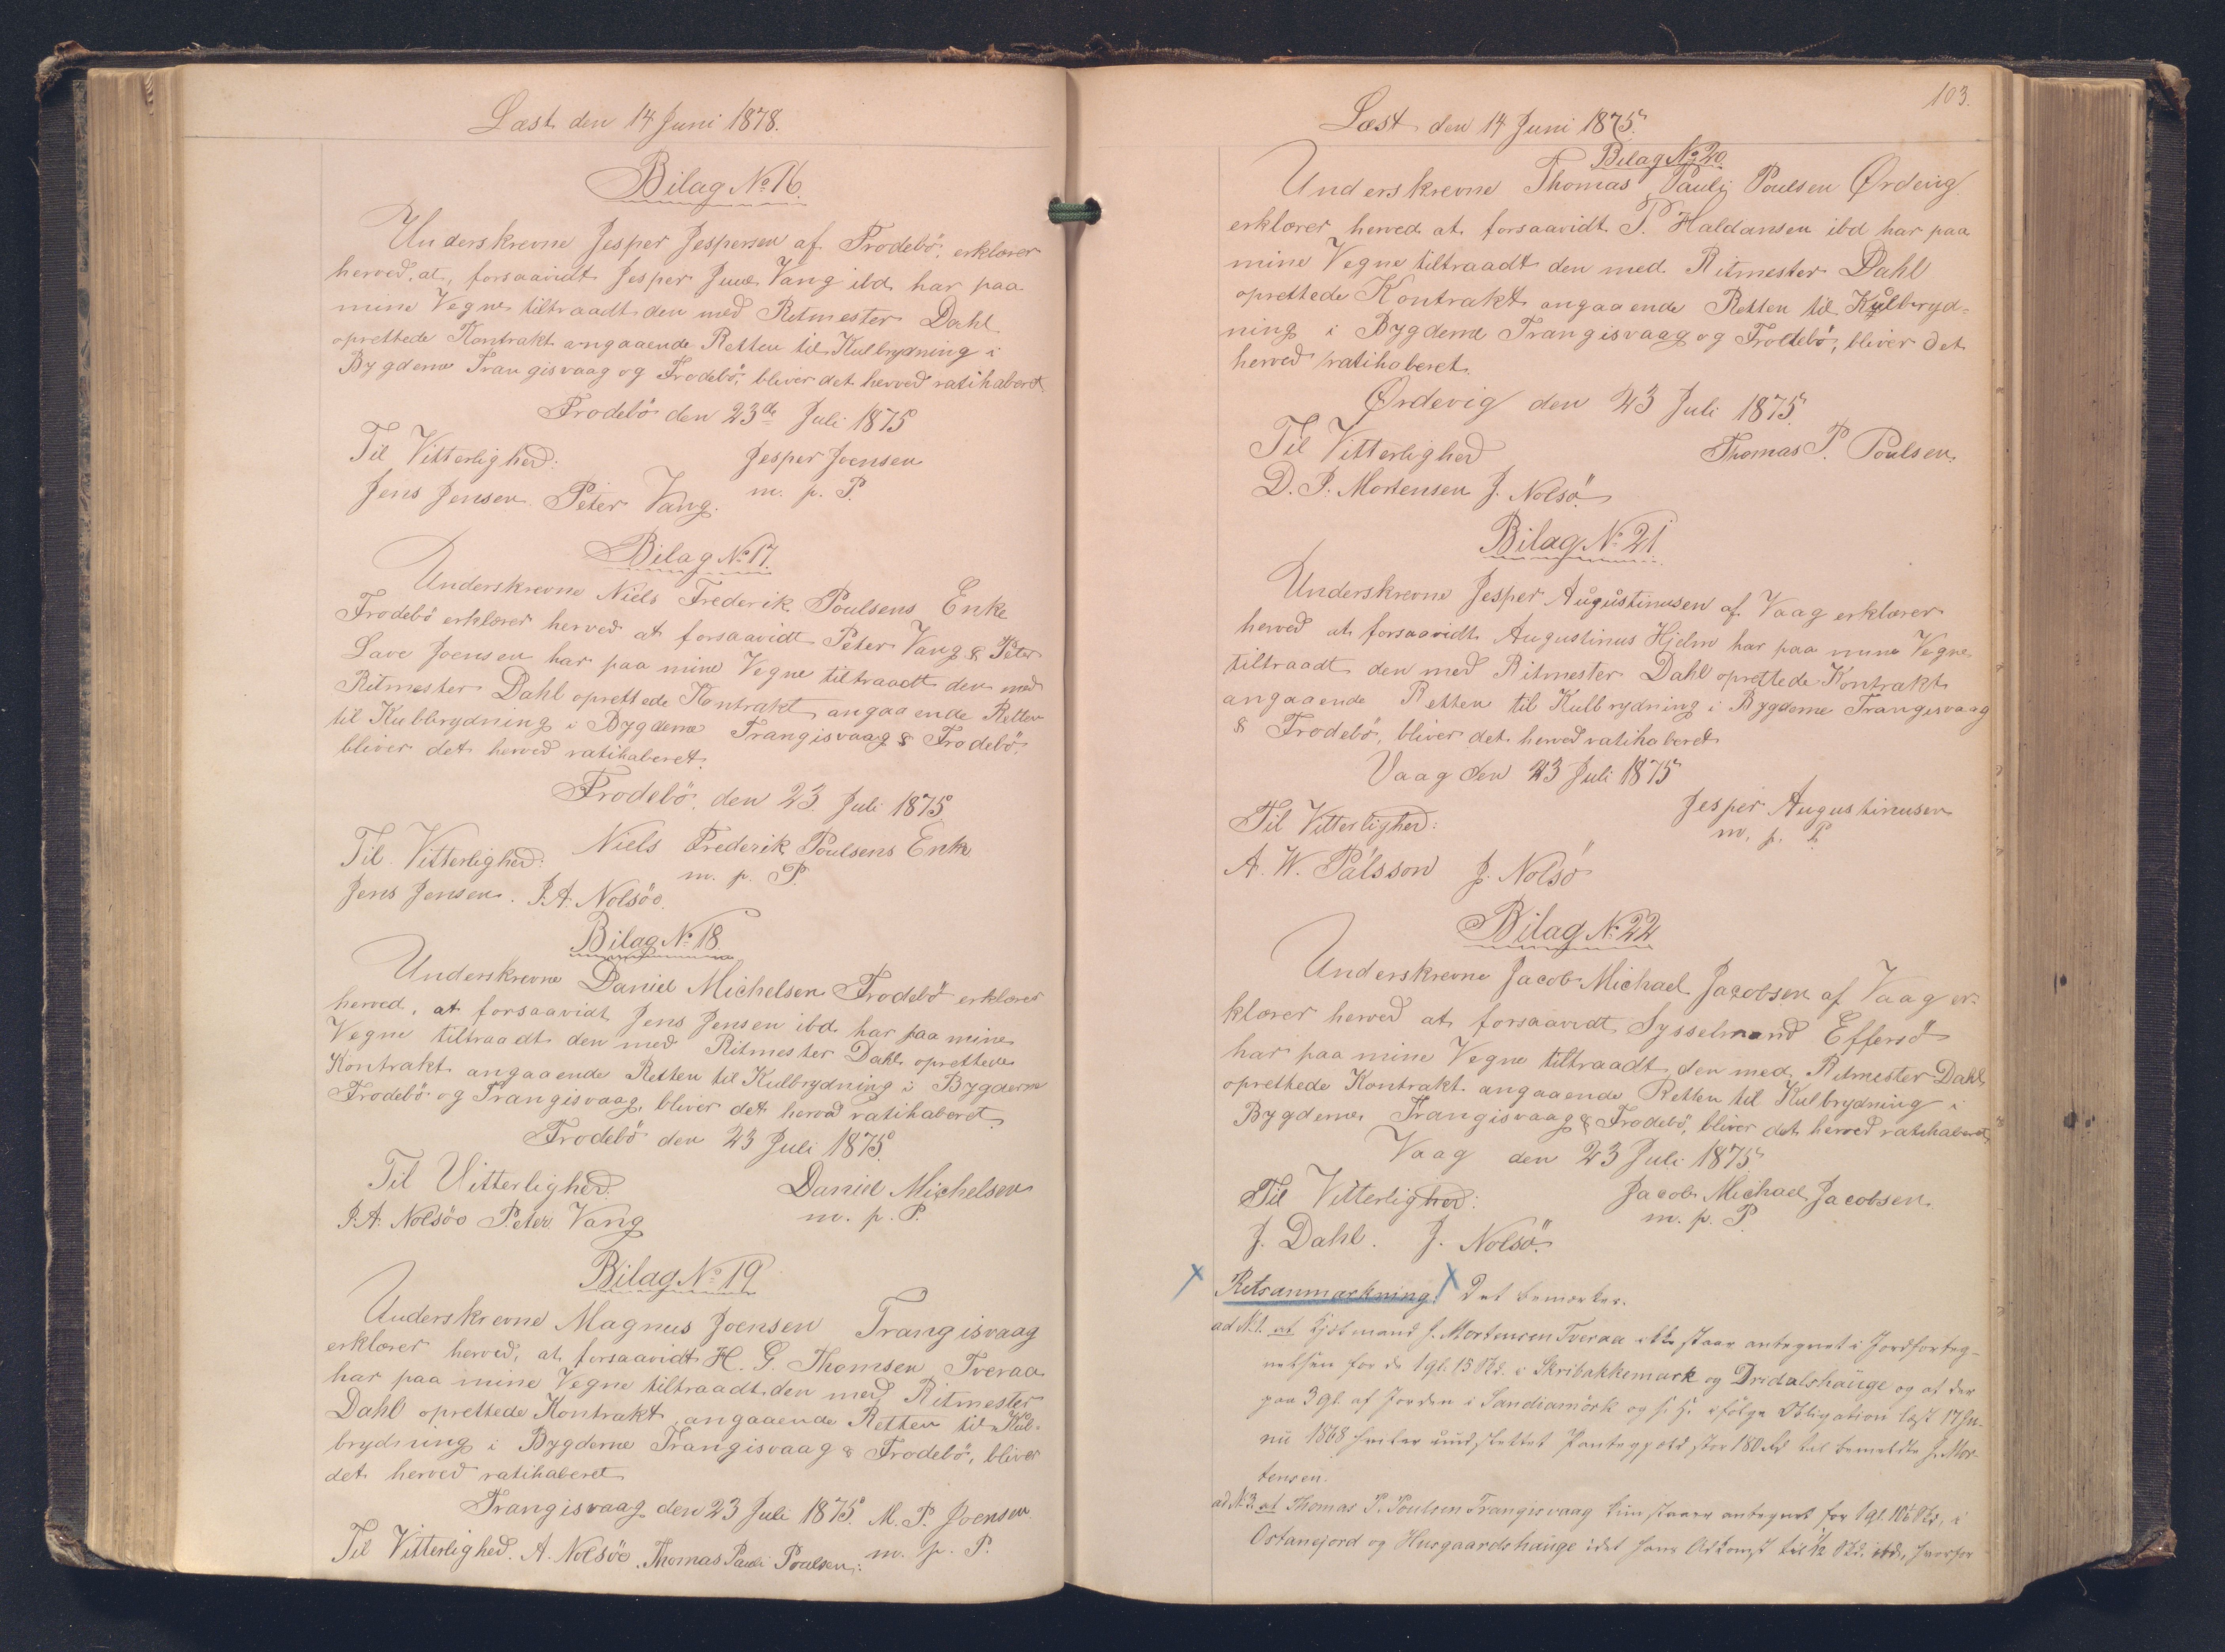 Læst den 14 Juni 1878.
Bilag No 16.
Underskrevne Jesper Jespersen af Frodebö, erklærer
herved, at, forsaavidt Jesper Vang ibd. har paa
mine Vegne tiltraadt den med Ritmester Dahl
oprettede Kontrakt angaaende Retten til Kulbrydning i
Bygderne Trangisvaag og Frodebö, bliver det herved ratihaberet.
Frodebö den 23de Juli 1875
Til Vitterlighed: Jesper Joensen
Jens Jensen. Peter Vang. m. p. P.
Bilag No 17.
Underskrevne Niels Frederik Poulsens Enke
Frodebö erklærer herved at forsaavidt Peter Vang & Peter
Save Joensen har paa mine Vegne tiltraadt den med
Ritmester Dahl oprettede Kontrakt angaaende Retten
til Kulbrydning i Bygderne Trangisvaag & Frodebö,
bliver det herved ratihaberet.
Frodebö, den 23 Juli 1875
Til Vitterlighed: Niels Frederik Poulsens Enke
Jens Jensen. P.A. Nolsöe. m. p. P.
Bilag No 18.
Underskrevne Daniel Michelsen Frodebö erklærer
herved, at forsaavidt Jens Jensen ibd. har paa mine
Vegne tiltraadt den med Ritmester Dahl oprettede
Kontrakt angaaende Retten til Kulbrydning i Bygderne
Frodebö og Trangisvaag, bliver det herved ratihaberet.
Frodebö den 23 Juli 1875.
Til Vitterlighed. Daniel Michelsen
P.A. Nolsöe Peter Vang m. p. P.
Bilag No 19
Underskrevne Magnus Joensen Trangisvaag
erklærer herved, at forsaavidt H. G. Thomsen Tveraa
har paa mine Vegne tiltraadt den med Ritmester
Dahl oprettede Kontrakt angaaende Retten til Kul-
brydning i Bygderne Trangisvaag & Frodebö, bliver
det herved ratihaberet
Trangisvaag den 23 Juli 1875. M. P. Joensen
Til Vitterlighed. A. Nolsöe. Thomas Pauli Poulsen. m. p. P.
103.
Læst den 14 Juni 1875.
Bilag No 20.
Underskrevne Thomas Pauli Poulsen Ørdevig
erklærer herved at forsaavidt P. Haldansen ibd har paa
mine Vegne tiltraadt den med Ritmester Dahl
oprettede Kontrakt angaaende Retten til Kulbryd-
ning i Bygderne Trangisvaag og Frodebö, bliver det
herved ratihaberet.
Ørdevig den 23 Juli 1875.
Til Vitterlighed Thomas P. Poulsen.
D. P. Mortensen J. Nolsö
Bilag No 21
Underskrevne Jesper Augustinusen af Vaag erklærer
herved at forsaavidt Augustinus Hjelm har paa mine Vegne
tiltraadt den med Ritmester Dahl oprettede Kontrakt
angaaende Retten til Kulbrydning i Bygderne Trangisvaag
& Frodebö, bliver det herved ratihaberet
Vaag den 23 Juli 1875
Til Vitterlighed: Jesper Augustinusen
m. p. P.
A. W. Pálsson J. Nolsö
Bilag No 22
Underskrevne Jacob Michael Jacobsen af Vaag er-
klærer herved at forsaavidt Sysselmand Effersö
har paa mine Vegne tiltraadt den med Ritmester Dahl
oprettede Kontrakt angaaende Retten til Kulbrydning i
Bygderne Trangisvaag & Frodebö, bliver det herved ratihaberet
Vaag den 23 Juli 1875.
Til Vitterlighed: Jacob Michael Jacobsen.
J. Dahl. J. Nolsö. m. p. P.
Retsanmærkning. Det bemærkes.
ad No 1. at Kjöbmand J. Mortensen Tveraa ikke staar antegnet i Jordforteg-
nelsen for de 1 gl. 15 Skd. i Skribakkemark og Dridalshauge og at der
paa 3 gl. af Jorden i Sandiamörk og ifölge Obligation læst 17 Ju-
ni 1868 hviler Pantegjæld stor 180 til bemeldte J. Mor-
tensen.
ad No 3. at Thomas P. Poulsen Trangisvaag kun staar antegnet for 1 gl. i
Ostanejord og Husgaardshauge idet hans Adkomst til ½ Skd. ibd., hvorfor